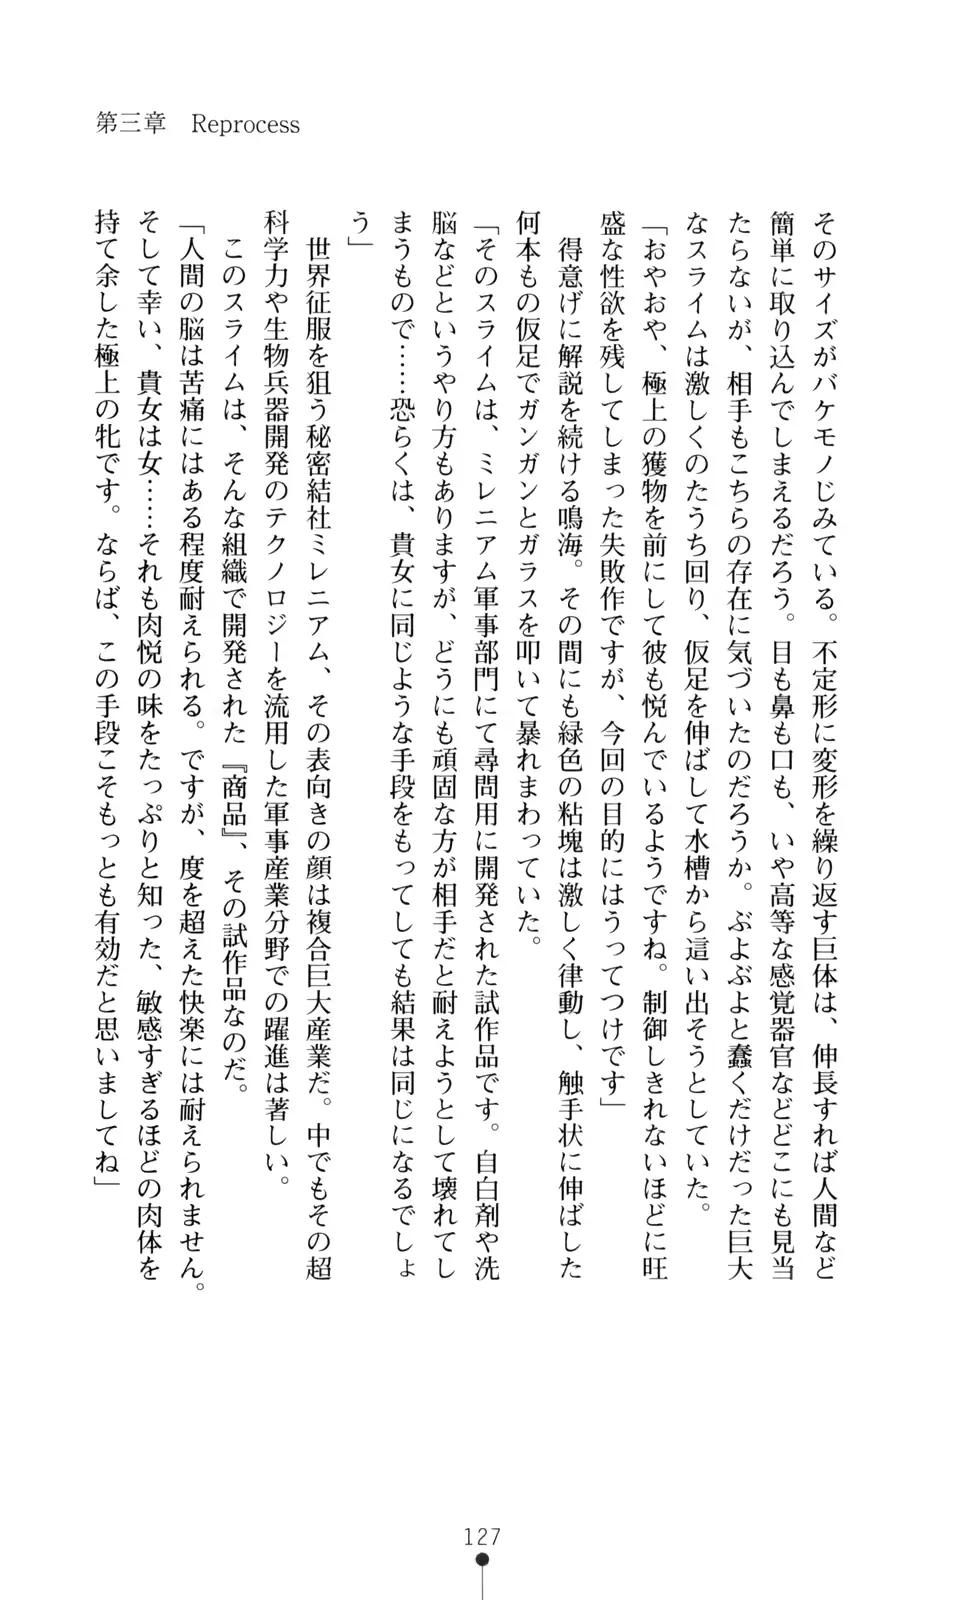 第三章　Reprocess
そのサイズがバケモノじみている。不定形に変形を繰り返す巨体は、伸長すれば人間など
簡単に取り込んでしまえるだろう。目も鼻も口も、いや高等な感覚器官などどこにも見当
たらないが、相手もこちらの存在に気づいたのだろうか。ぶよぶよと蠢くだけだった巨大
なスライムは激しくのたうち回り、仮足を伸ばして水槽から這い出そうとしていた。
「おやおや、極上の獲物を前にして彼も悦んでいるようですね。制御しきれないほどに旺
盛な性欲を残してしまった失敗作ですが、今回の目的にはうってつけです」
　得意げに解説を続ける鳴海。その間にも緑色の粘塊は激しく律動し、触手状に伸ばした
何本もの仮足でガンガンとガラスを叩いて暴れまわっていた。
「そのスライムは、ミレニアム軍事部門にて尋問用に開発された試作品です。自白剤や洗
脳などというやり方もありますが、どうにも頑固な方が相手だと耐えようとして壊れてし
まうもので……恐らくは、貴女に同じような手段をもってしても結果は同じになるでしょ
う」
　世界征服を狙う秘密結社ミレニアム、その表向きの顔は複合巨大産業だ。中でもその超
科学力や生物兵器開発のテクノロジーを流用した軍事産業分野での躍進は著しい。
　このスライムは、そんな組織で開発された『商品』、その試作品なのだ。
「人間の脳は苦痛にはある程度耐えられる。ですが、度を超えた快楽には耐えられません。
そして幸い、貴女は女……それも肉悦の味をたっぷりと知った、敏感すぎるほどの肉体を
持て余した極上の牝です。ならば、この手段こそもっとも有効だと思いましてね」
127